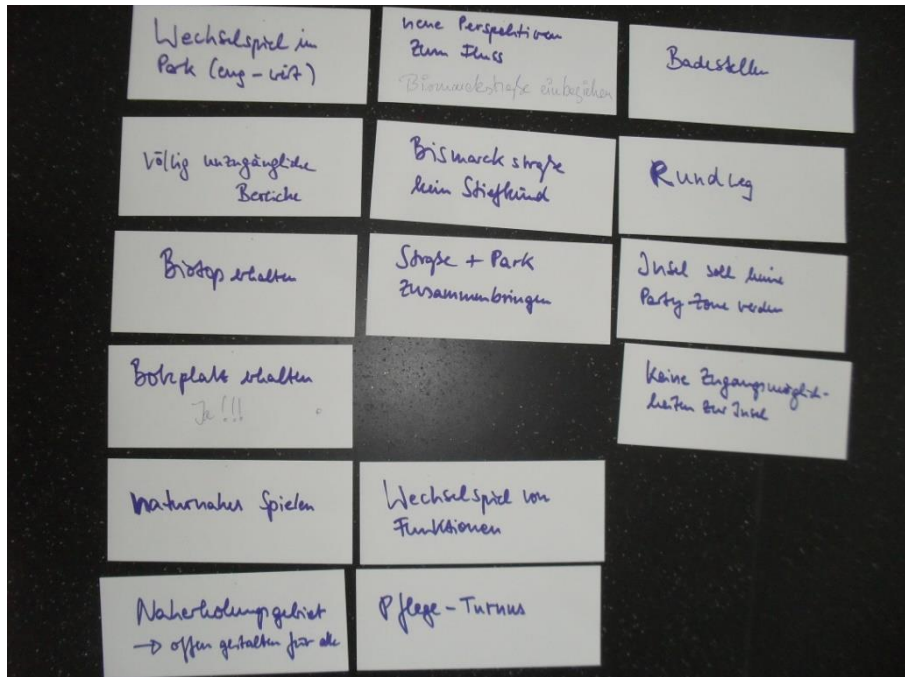 Wechselspiel im
Park (eng - weit)
völlig unzugängliche
Bereiche
Biotop erhalten
Bolzplatz erhalten
Ja!!!
naturnahes Spielen
Naherholungsgebiet
→ offen gestalten für alle
neue Perspektiven
zum Fluss
Bismarckstraße einbeziehen
Bismarckstraße
kein Stiefkind
Straße + Park
zusammenbringen
Wechselspiel von
Funktionen
Pflege-Turnus
Badestellen
Rundweg
Insel soll keine
Party-Zone werden
Keine Zugangsmöglich-
keiten zur Insel